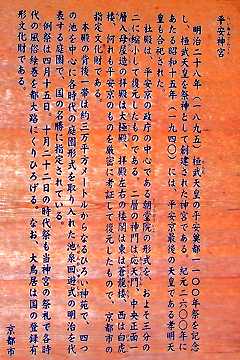 平安神宮
明治二十八年(一八九五)、桓武天皇の平安奠都一一〇〇年祭を記念
し、桓武天皇を祭神として創建された神宮である。紀元二六〇〇年に
あたる昭和十五年(一九四〇)には、平安京最後の天皇である孝明天
皇も合祀された。
社殿は、平安京の政庁の中心である朝堂院の形式を、およそ三分の
二に縮小して復元したものである。二層の神門は応天門、中央正面一
層入母屋造の拝殿は大極殿、拝殿左右の楼閣は東は蒼龍楼、西は白虎
楼、何れも平安京のものを厳密に考証して復元したもので、京都市の
指定文化財である。
本殿の背後一帯は約三万平方メートルからなるひろい神苑で、四つ
の池を中心に各時代の庭園形式を取り入れた池泉回遊式の明治を代
表する庭園で、国の名勝に指定されている。
例祭は四月十五日、十月二十二日の時代祭も当神宮の祭礼で各時
代の風俗絵巻を都大路にくりひろげる。なお、大鳥居は国の登録有
形文化財である。
京都市